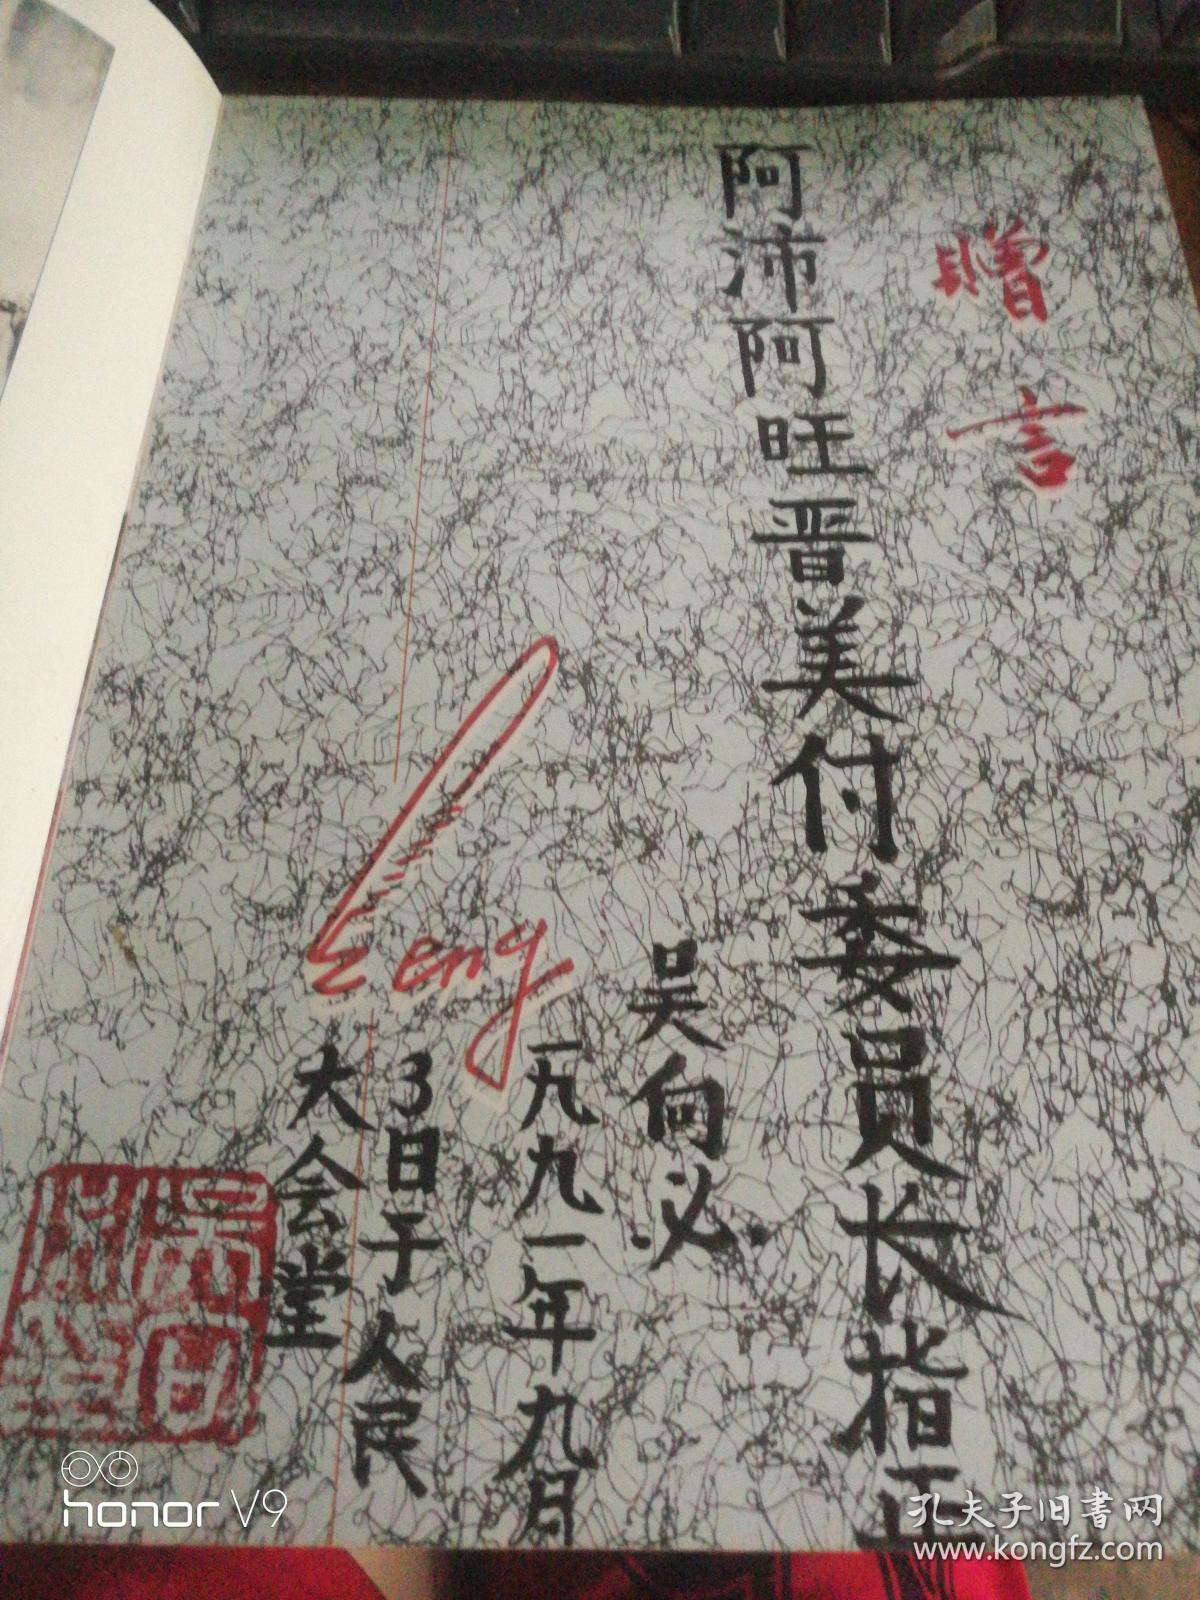 赠言
阿沛阿旺晋美付委员长指正
吴向必.
一九九一年九月
3日于人民
大会堂
eng
honor V9
孔夫子旧书网
www.kongfz.com